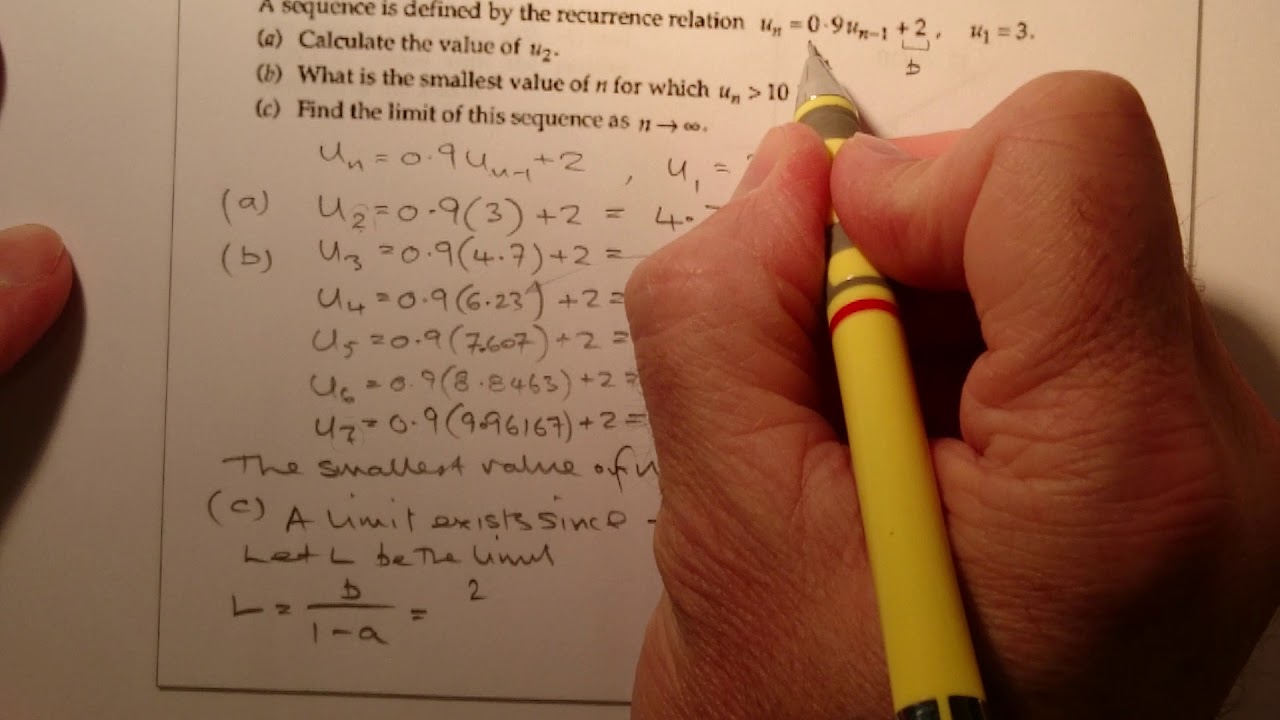 A sequence is defined by the recurrence relation uₙ = 0·9uₙ₋₁ + 2, u₁ = 3.
b
(a) Calculate the value of u₂.
(b) What is the smallest value of n for which uₙ > 10
(c) Find the limit of this sequence as n → ∞.
Uₙ = 0.9Uₙ₋₁ + 2 , U₁ =
(a) U₂ = 0.9(3) + 2 = 4.
(b) U₃ = 0.9(4.7) + 2 =
U₄ = 0.9(6.23) + 2 =
U₅ = 0.9(7.607) + 2 =
U₆ = 0.9(8.8463) + 2 =
U₇ = 0.9(9.96167) + 2 =
The smallest value of n
(c) A limit exists since -
Let L be the limit
L = b/(1-a) = 2